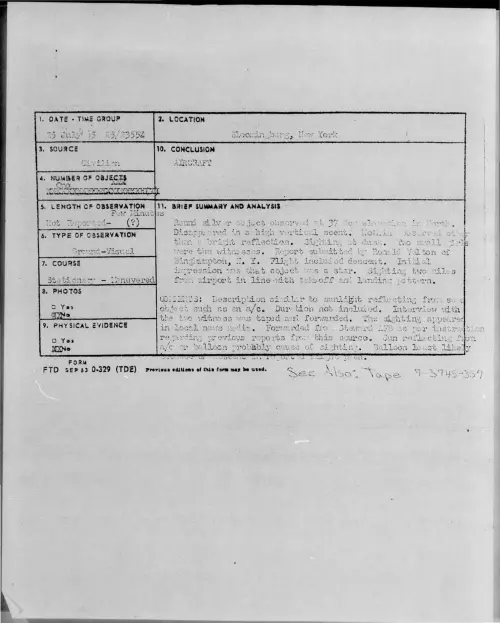 1. DATE - TIME GROUP
25 July 65 25/2355Z
2. LOCATION
Bloomingburg, New York
3. SOURCE
Civilian
10. CONCLUSION
AIRCRAFT
4. NUMBER OF OBJECTS
One
5. LENGTH OF OBSERVATION
Few Minutes
Not Reported- (?)
11. BRIEF SUMMARY AND ANALYSIS
Round silver object observed at 37 deg elevation in North.
Disappeared in a high vertical ascent. Nothing observed other
than a bright reflection. Sighting at dusk. Two small
were the witnesses. Report submitted by Ronald of
Binghampton, N. Y. Flight included descent. Initial
impression was that object was a star. Sighting two miles
from airport in line with takeoff and landing pattern.
6. TYPE OF OBSERVATION
Ground-Visual
7. COURSE
Stationary - Manuvered
8. PHOTOS
□ Yes
No
9. PHYSICAL EVIDENCE
□ Yes
No
COMMENTS: Description similar to sunlight reflecting from some
object such as an a/c. Duration not included. Interview with
the two witness was taped and forwarded. The sighting appeared
in local news media. Forwarded from Steward AFB as per instruction
regarding previous reports from this source. Sun reflecting from
a/c or balloon probably cause of sighting. Balloon least likely
FORM
FTD SEP 63 0-329 (TDE) Previous editions of this form may be used.
See Also: Tape 7-3745-359